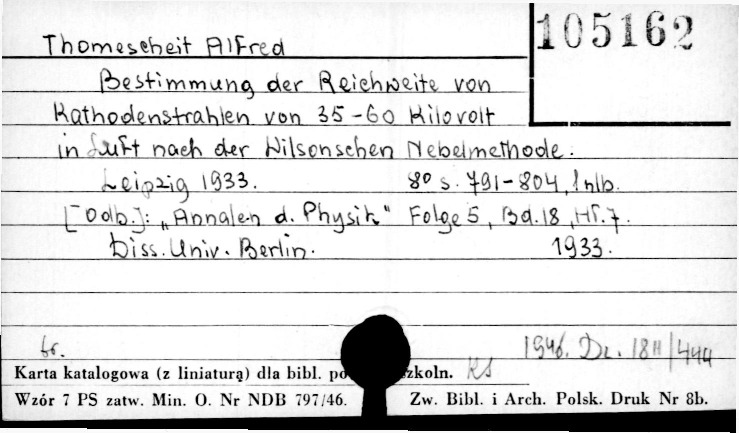 105162
Thomescheit Alfred
Bestimmung der Reichweite von
Kathodenstrahlen von 35-60 Kilovolt
in Luft nach der Wilsonschen Nebelmethode.
Leipzig 1933. 8⁰ s. 791-804, 1 nlb.
[Odb.]: „Annalen d. Physik" Folge 5, Bd. 18, Hf. 7.
Diss. Univ. Berlin. 1933.
br. 1946. Dr. 1811/444
Karta katalogowa (z liniaturą) dla bibl. zkoln.
Wzór 7 PS zatw. Min. O. Nr NDB 797/46. Zw. Bibl. i Arch. Polsk. Druk Nr 8b.